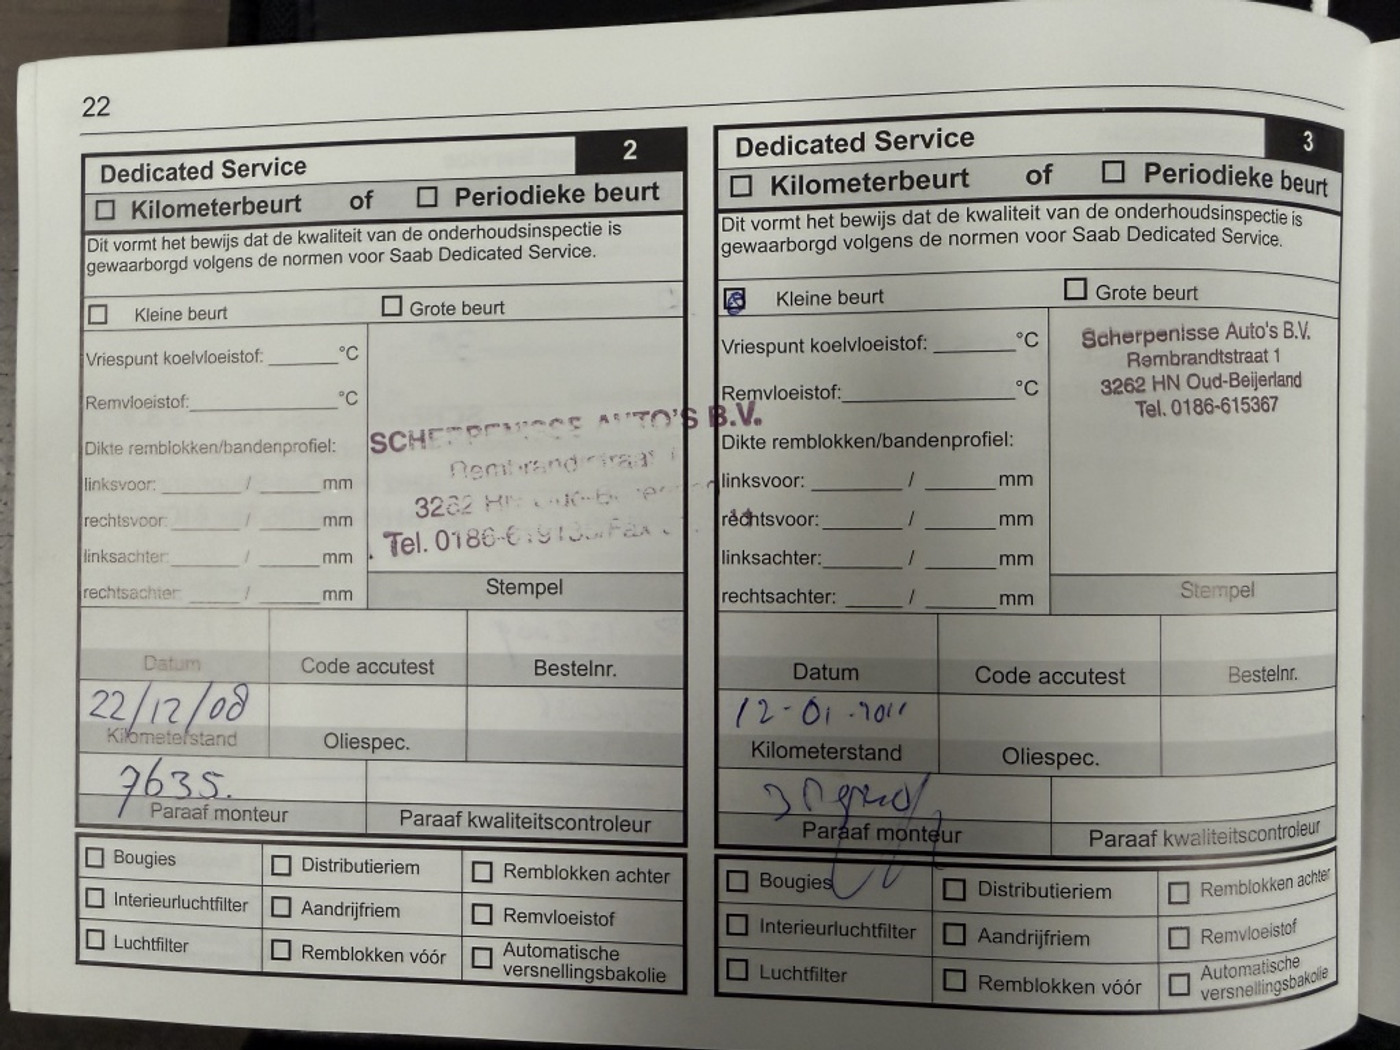 22
Dedicated Service 2
Kilometerbeurt of Periodieke beurt
Dit vormt het bewijs dat de kwaliteit van de onderhoudsinspectie is
gewaarborgd volgens de normen voor Saab Dedicated Service.
Kleine beurt Grote beurt
Vriespunt koelvloeistof: ______ °C
Remvloeistof: ______ °C
Dikte remblokken/bandenprofiel:
linksvoor: ______ / ______ mm
rechtsvoor: ______ / ______ mm
linksachter: ______ / ______ mm
rechtsachter: ______ / ______ mm
SCHERPENISSE AUTO'S B.V.
Rembrandtstraat 1
3262 HN Oud-Beijerland
Tel. 0186- Fax
Stempel
Datum Code accutest Bestelnr.
22/12/08
Kilometerstand Oliespec.
7635.
Paraaf monteur Paraaf kwaliteitscontroleur
Bougies Distributieriem Remblokken achter
Interieurluchtfilter Aandrijfriem Remvloeistof
Luchtfilter Remblokken vóór Automatische
versnellingsbakolie
Dedicated Service 3
Kilometerbeurt of Periodieke beurt
Dit vormt het bewijs dat de kwaliteit van de onderhoudsinspectie is
gewaarborgd volgens de normen voor Saab Dedicated Service.
Kleine beurt Grote beurt
Vriespunt koelvloeistof: ______ °C
Remvloeistof: ______ °C
Dikte remblokken/bandenprofiel:
linksvoor: ______ / ______ mm
rechtsvoor: ______ / ______ mm
linksachter: ______ / ______ mm
rechtsachter: ______ / ______ mm
Scherpenisse Auto's B.V.
Rembrandtstraat 1
3262 HN Oud-Beijerland
Tel. 0186-615367
Stempel
Datum Code accutest Bestelnr.
12-01-2011
Kilometerstand Oliespec.
Paraaf monteur Paraaf kwaliteitscontroleur
Bougies Distributieriem Remblokken achter
Interieurluchtfilter Aandrijfriem Remvloeistof
Luchtfilter Remblokken vóór Automatische
versnellingsbakolie